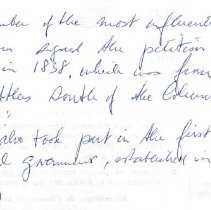 mber of the most influent
signed the petition
in 1838, which was from
ttlers South of the Colum
:
also took part in the first
l government, established in